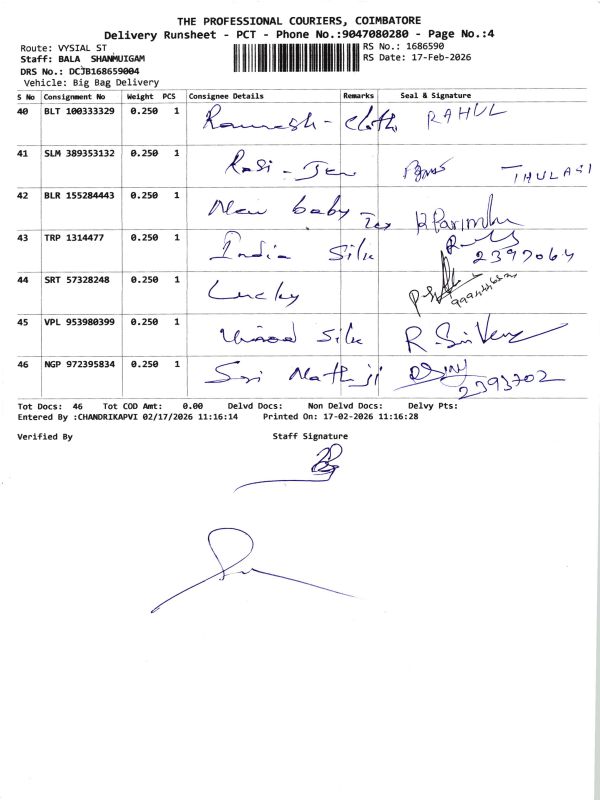 THE PROFESSIONAL COURIERS, COIMBATORE
Delivery Runsheet - PCT - Phone No.:9047080280 - Page No.:4
Route: VYSIAL ST
Staff: BALA SHANMUIGAM
DRS No.: DCJB168659004
Vehicle: Big Bag Delivery
RS No.: 1686590
RS Date: 17-Feb-2026
S No Consignment No Weight PCS Consignee Details Remarks Seal & Signature
40 BLT 100333329 0.250 1 Ramesh - Cloth RAHUL
41 SLM 389353132 0.250 1 Rasi - THULASI
42 BLR 155284443 0.250 1 New baby Tex
43 TRP 1314477 0.250 1 India Silk 2397064
44 SRT 57328248 0.250 1 Lucky
45 VPL 953980399 0.250 1 Vinod Silk
46 NGP 972395834 0.250 1 Sri Nathji 2393702
Tot Docs: 46 Tot COD Amt: 0.00 Delvd Docs: Non Delvd Docs: Delvy Pts:
Entered By :CHANDRIKAPVI 02/17/2026 11:16:14 Printed On: 17-02-2026 11:16:28
Verified By Staff Signature